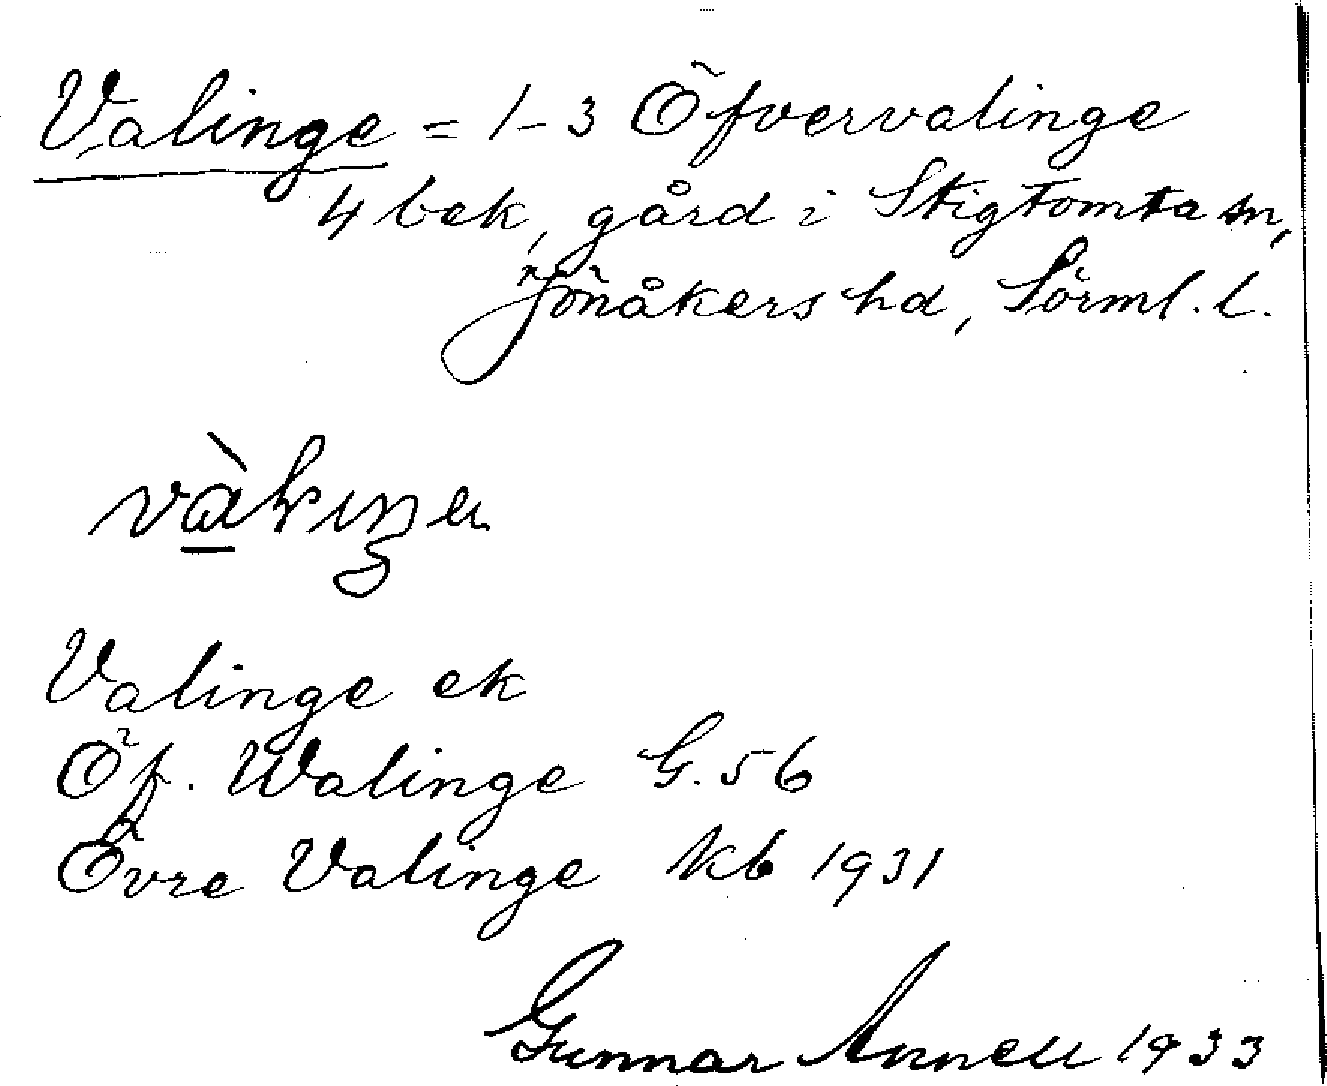 Valinge = 1-3 Öfvervalinge
4 bek, gård i Stigtomta sn,
Jönåkers hd, Sörml. l.
Valinge ek
Öf. Walinge G. 56
Övre Valinge kb 1931
Gunnar Annell 1933